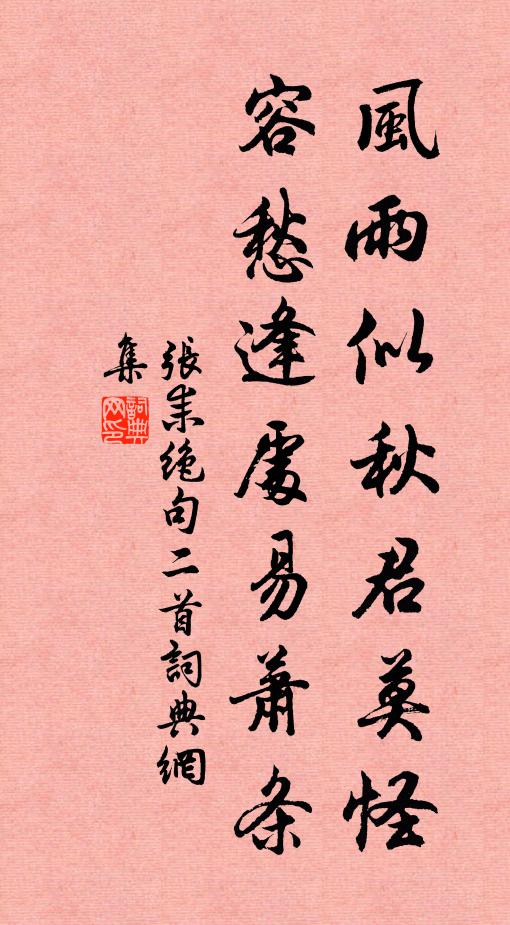 風雨似秋君莫怪
容愁逢處易蕭条
張耒絶句二首詞典網
集
詞典网印